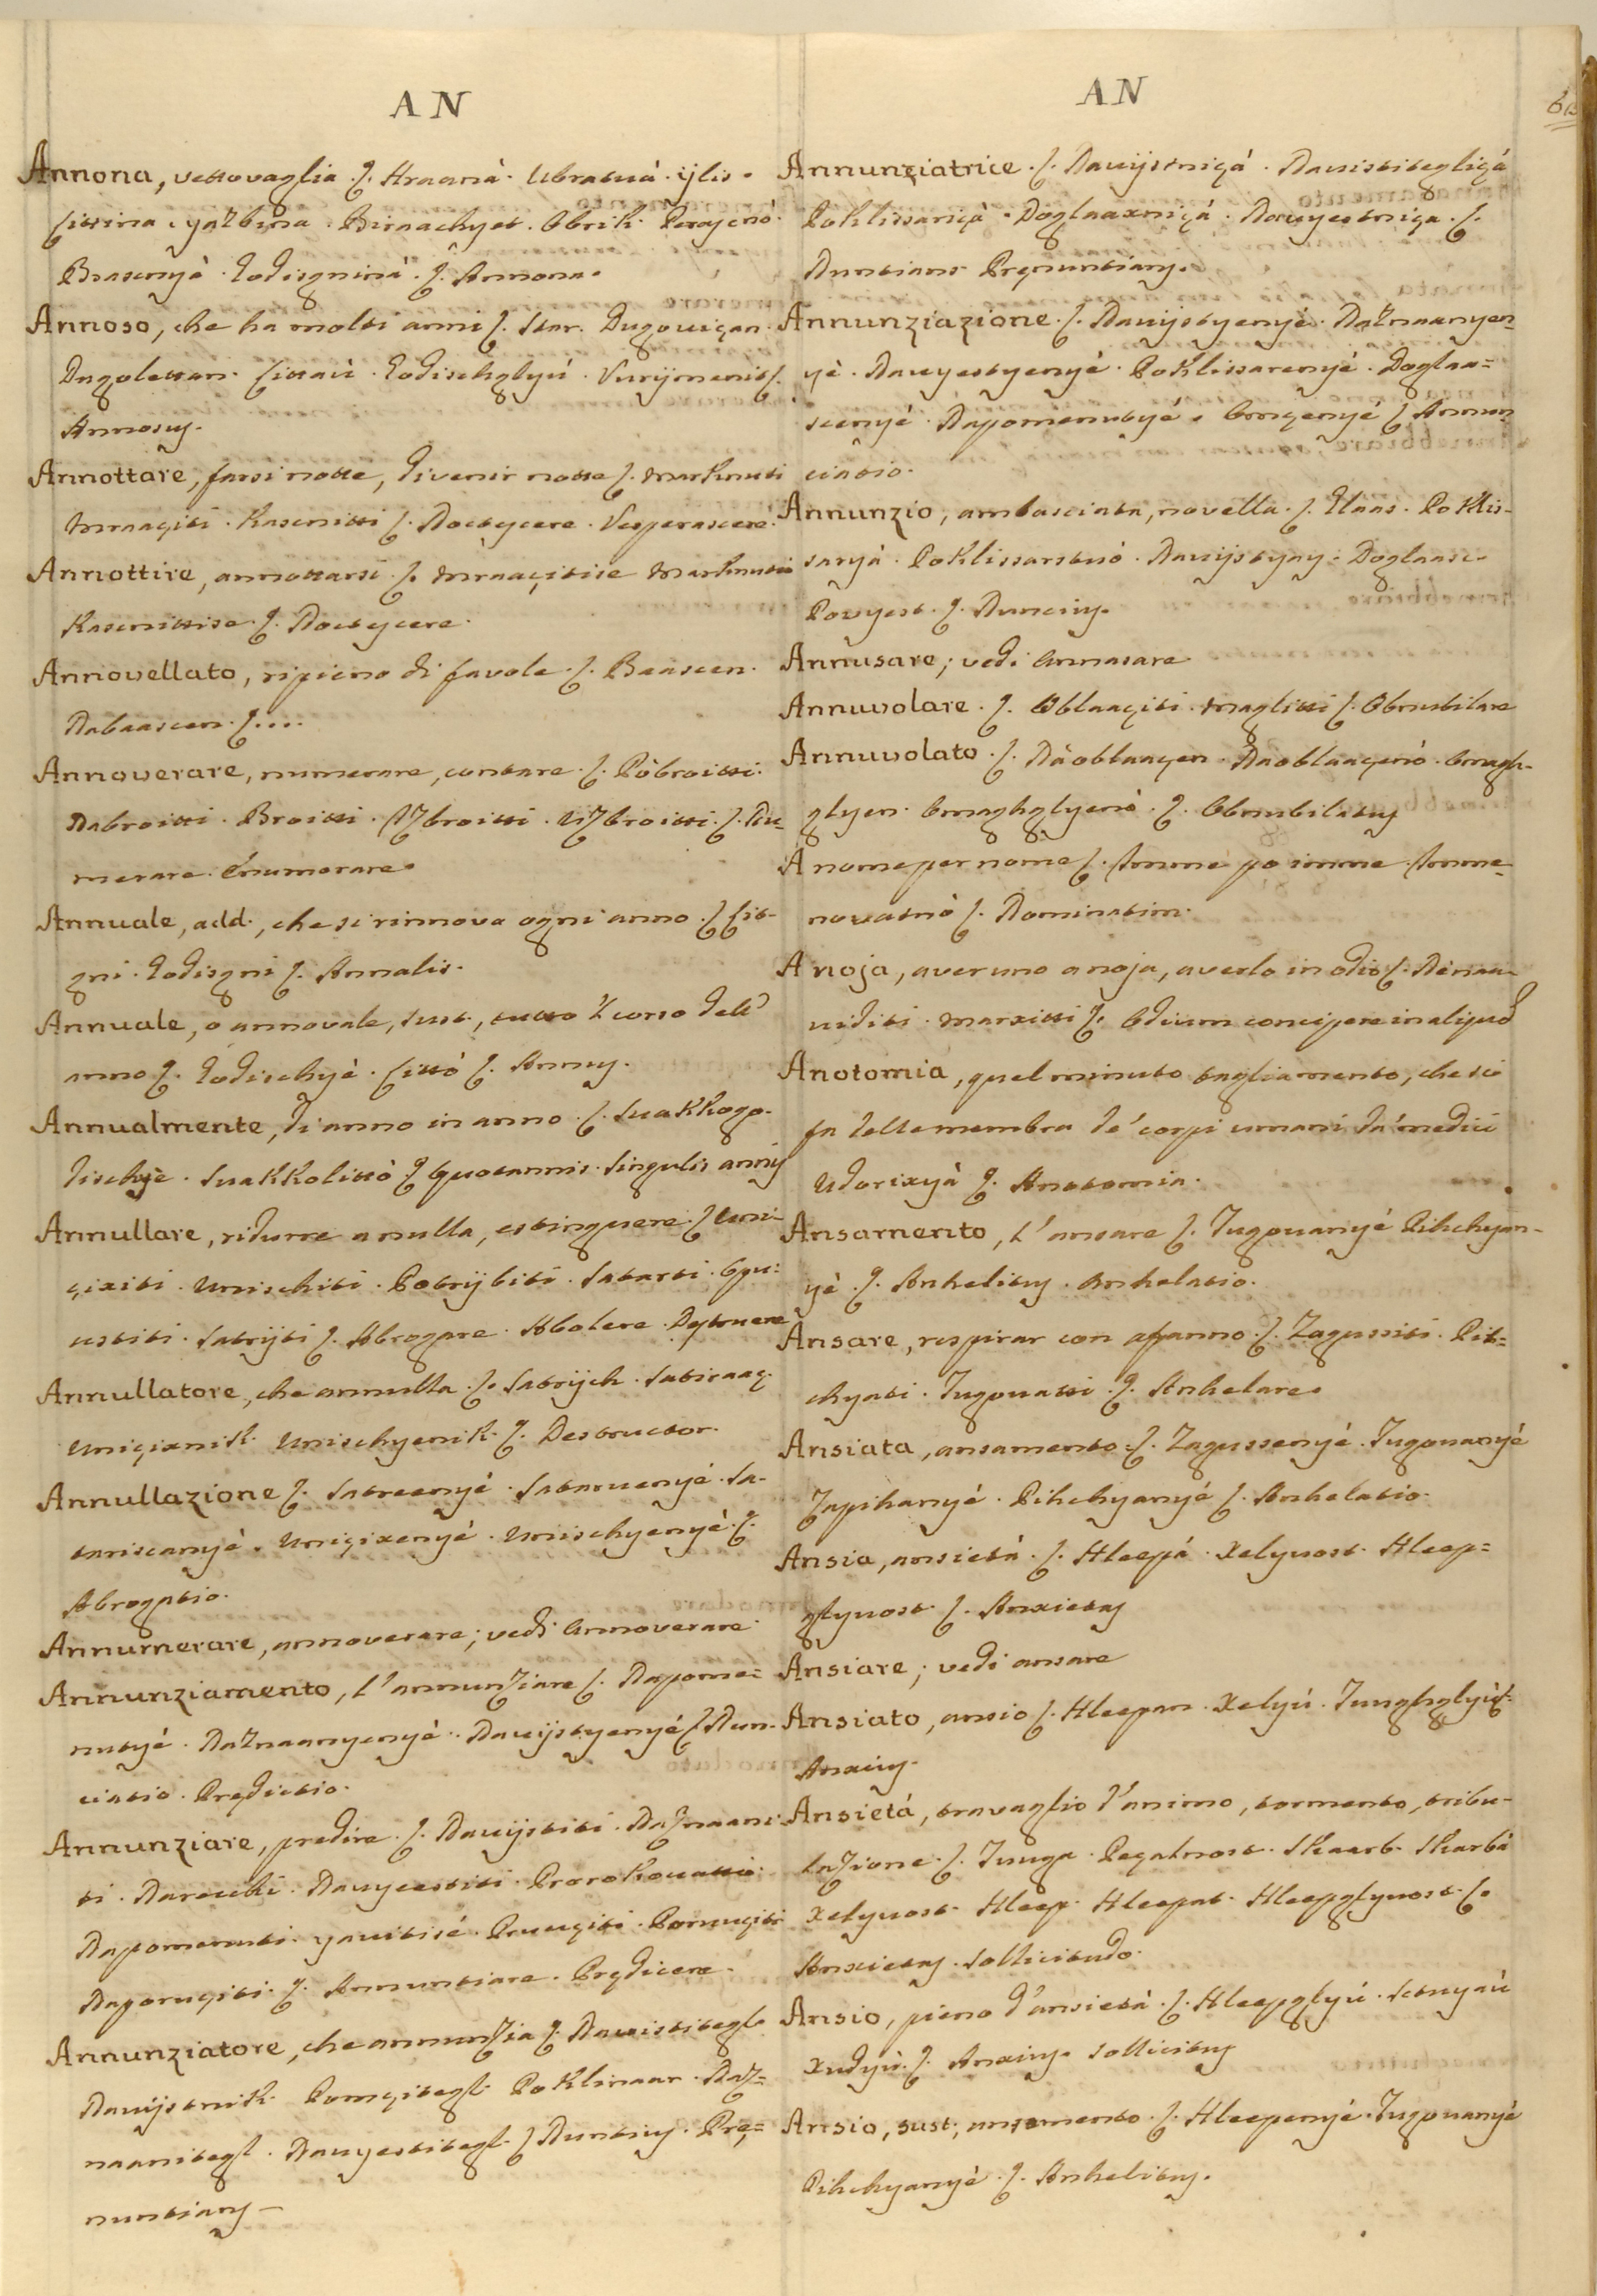 AN
Annona, vettovaglia. ſ. Hraanà. Ubratuà. ijlis.
Annoso, che ha molti anni ſ. Star. Dugouiçan.
Dugolettan.
Annosuʃ.
Annottare, farsi notte, divenir notte ſ. Marknuti
Mraaçiti. Kascnitti ſ. Noctescere. Vesperascere.
Annottire, annottarsi. ſ. Mraaçitise Marknuti
Kascnittise. ſ. Noctescere.
Annovellato, ripieno di favole. ſ. Baascen.
Nabaascen. ſ....
Annoverare, numerare, contare. ſ. Pòbroitti.
Nabroitti. Broitti. Izbroitti. Uzbroitti. ſ. Nu-
merare. Enumerare.
Annuale, add., che si rinnova ogni anno. ſ Lit-
gni. Godisgni ſ. Annalis.
Annuale, o annovale, sust., tutto 'l corso dell'
anno ſ. Godischyè. Littò ſ. Annuʃ.
Annualmente, di anno in anno. ſ. Suakkogo-
dischyè. Suakkolittò ſ Quotannis. Singulis anniʃ
Annullare, ridurre a nulla, estinguere. ſ Uni-
çixiti. Unischiti. Potrijbiti. Satarti. Opu-
ustiti. Satrijti ſ. Abrogare. Abolere. Destruere
Annullatore, che annulla. ſ. Satrijch. Satiraaç.
Uniçixnik. Unischyenik. ſ. Destructor.
Annullazione ſ. Satreenyé. Sataruenyé. Sa-
tariscanyé. Uniçixenyé. Unischyenyé. ſ.
Abrogatio.
Annumerare, annoverare; vedi Annoverare.
Annunziamento, l'annunziare ſ. Napome-
nutyé. Naznaanyenyé. Nauijstyenyé ſ Nun-
ciatio. Prędictio.
Annunziare, predire. ſ. Nauijstiti. Naznaani-
ti. Narecchi. Nauyestiti. Prorokouatti.
Napomenuti. yauitisé. Poruçiti
Naporuçiti. ſ. Annuntiare. Prędicere.
Annunziatore, che annunzia ſ. Nauistitegl.
Nauijstnik. Poklisaar. Naz-
naanitegl. Nauyestitegl. ſ Nuntiuʃ. Pre-
nuntianʃ
AN
Annunziatrice. ſ. Nauijstniçá. Nauistitegliçá
Poklissariçà. Doglaaxniçá. Nauyestniça. ſ.
Nuntians. Pręnuntianʃ.
Annunziazione. ſ. Nauijstyenyé. Naznaanyen-
yè. Nauyestyenyé. Poklissarenyé. Doglaa-
scenyé. Napomenutyé. ſ Annun
ciatio.
Annunzio, ambasciata, novella. ſ. Glaas. Poklis-
saryà. Poklissarstuò. Nauijstyay. Doglaasc.
Povyest. ſ. Nunciuʃ.
Annusare; vedi Annasare
Annuvolare. ſ. Oblaaçiti. Maglitti ſ. Obnubilare
Annuvolato. ſ. Naoblaaçen. Naoblaaçenò. Omagh-
glyen. Omaghglyenò. ſ. Obnubilatuʃ
A nome per nome ſ. Immè po imme. Imme-
nouatnò ſ. Nominatim.
A noja, aver uno a noja, averlo in odio ſ. Nenaa-
uiditi. Marxitti ſ. Odium concipere in aliquē
Anotomia, quel minuto tagliamento, che si
fa delle membra de' corpi umani da' medici
Udorixyà ſ. Anatomia.
Ansamento, l'ansare ſ. Tugouanyé Pihchyan-
yè. ſ. Anhelituʃ. Anhelatio.
Ansare, respirar con affanno. ſ. Zagussiti. Pih-
chyati. Tugouatti. ſ. Anhelare.
Ansiata, ansamento. ſ. Zagussenyé. Tugouanyé
Zapihanyé. Pihchyanyé ſ. Anhelatio.
Ansia, ansietà. ſ. Hleepá. Xelyuost. Hleep-
glyuost. ſ. Anxietaʃ
Ansiare; vedi ansare
Ansiato, ansio ſ. Hleepan. Xelyú. Tuughglyù ſ.
Anxiuʃ.
Ansietá, travaglio d'animo, tormento, tribu-
lazione. ſ. Tuuga. Peçalnost. Skaarb. Skarbà
Xelyuost. Hleep. Hleepat. Hleepglyuost. ſ.
Anxietaʃ. Sollicitudo.
Ansio, pieno d'ansietà. ſ. Hleepglyú. Sctuyaù
Xudyù. ſ. Anxiuʃ. Sollicituʃ
Ansio, sust; ansamento. ſ. Hleepenyé. Tugouanyè
Pihchyanyè. ſ. Anhelituʃ.